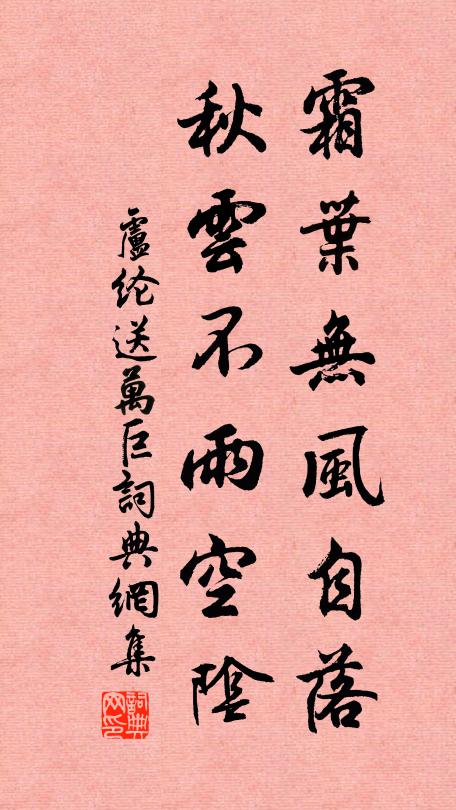 霜葉無風自落
秋雲不雨空陰
盧纶送萬巨詞典網集
詞典
网印